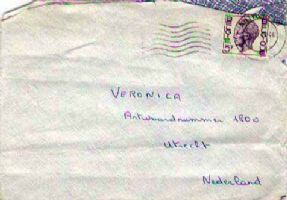 VERONICA
Antwoordnummer 1800
Utrecht
Nederland